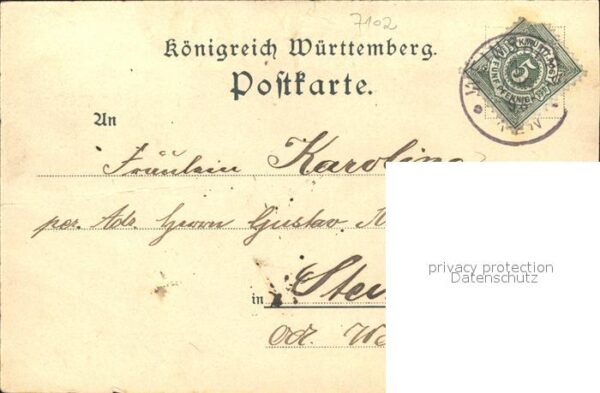 7102
Königreich Württemberg.
Postkarte.
An
Fräulein Karoline
per. Adr. Herrn Gustav
in
Od. W
K. WÜRTT. POST
5
FÜNF PFENNIG
privacy protection
Datenschutz